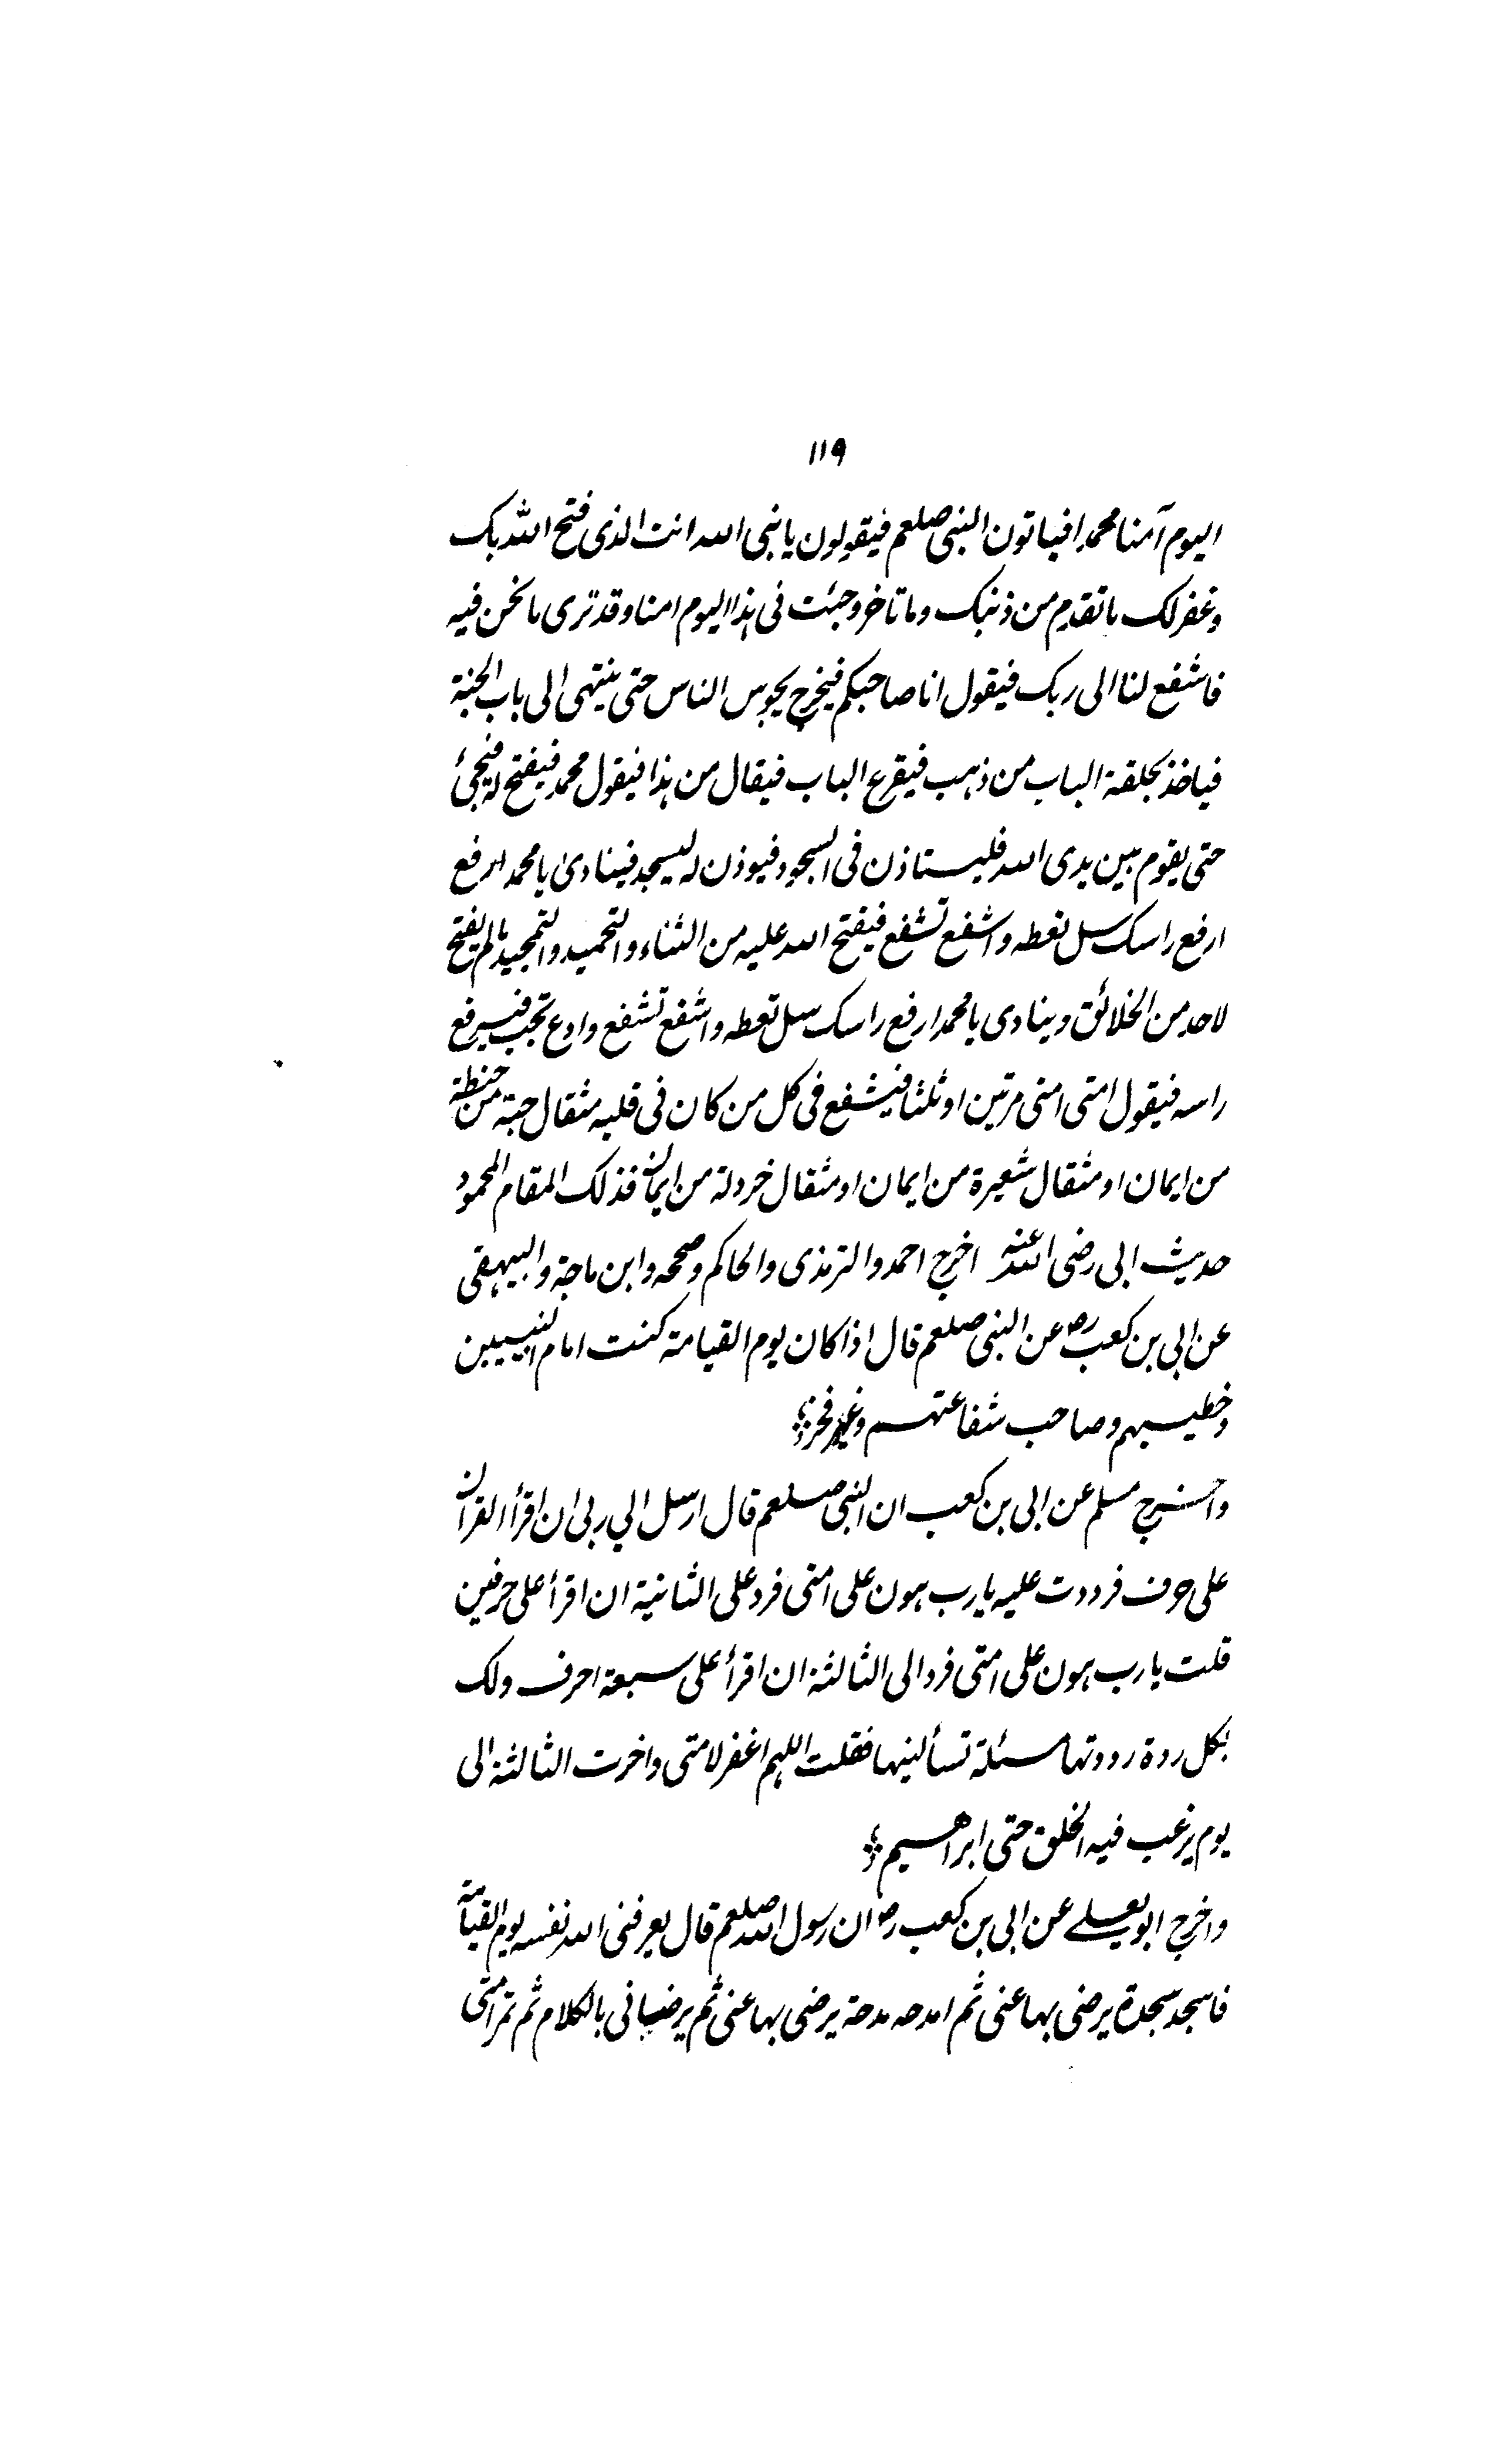 ۱۱۹
اليوم آمنا محمد افياتون النبى صلعم فيقولون يا نبى الله انت الذى فتح الله بك
وغفر لك ما تقدم من ذنبك وما تاخر وجئت فى هذا اليوم امنا وقد ترى ما نحن فيه
فاشفع لنا الى ربك فيقول انا صاحبكم فيخرج يجوس الناس حتى ينتهى الى باب الجنة
فياخذ بحلقة الباب من ذهب فيقرع الباب فيقال من هذا فيقول محمد فيفتح له فيجئ
حتى يقوم بين يدى الله فليستاذن فى السجود فيوذن له ليسجد فينادى يا محمد ارفع
ارفع راسك سل تعطه واشفع تشفع فيفتح الله عليه من الثناء والتحميد والتمجيد ما لم يفتح
لاحد من الخلائق وينادى يا محمد ارفع راسك سل تعطه واشفع تشفع وادع تجب فيرفع
راسه فيقول امتى امتى مرتين او ثلثا فيشفع فى كل من كان فى قلبه مثقال حبة من حنطة
من ايمان او مثقال شعيرة من ايمان او مثقال خردلة من ايمان فذلك المقام المحمود
حديث ابى رضى الله عنه اخرج احمد والترمذى والحاكم وصححه وابن ماجة والبيهقى
عن ابى بن كعب رض عن النبى صلعم قال اذا كان يوم القيامة كنت امام النبيين
وخطيبهم وصاحب شفاعتهم وغير فخر
واخرج مسلم عن ابى بن كعب ان النبى صلعم قال ارسل الي ربى ان اقرأ القرآن
على حرف فرددت عليه يا رب هون على امتى فرد على الثانية ان اقرأ على حرفين
قلت يا رب هون على امتى فرد الى الثالثة ان اقرأ على سبعة احرف ولك
بكل ردة رددتها مسئلة تسألنيها فقلت اللهم اغفر لامتى واخرت الثالثة الى
يوم يرغب فيه الخلق حتى ابراهيم
واخرج ابو يعلے عن ابى بن كعب رض ان رسول الله صلعم قال يعرفنى الله نفسه يوم القيامة
فاسجد سجدة يرضى بها عنى ثم امدحه مدحة يرضى بها عنى ثم يرضيانى بالكلام ثم تمر امتى